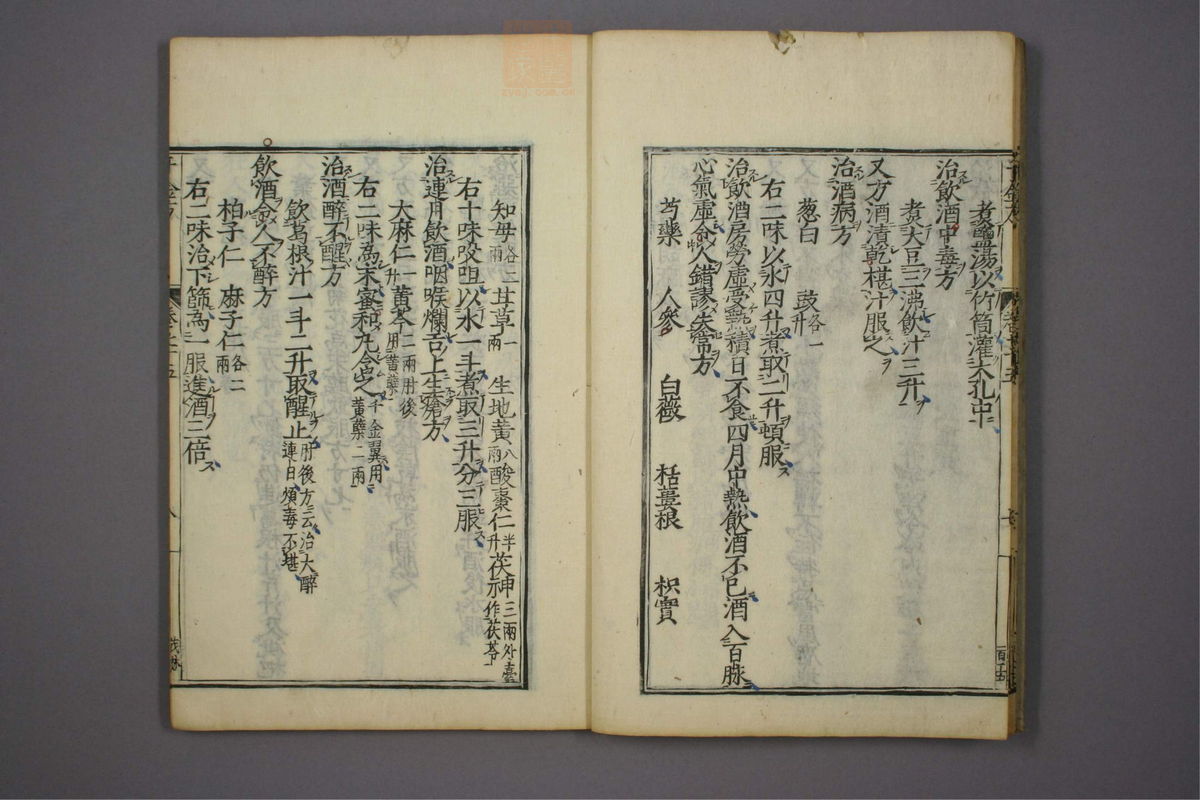 煮鹽湯以竹筒灌大孔中
治飲酒中毒方
煮大豆三沸飲汁三升
又方酒漬乾椹汁服之
治酒病方
葱白 豉各一升
右二味以水四升煮取二升頓服
治飲酒房勞虛受熱積日不食四月中熱飲酒不已酒入百脉
心氣虛令人錯謬失常方
芍藥 人參 白薇 栝蔞根 枳實
知母各二兩 甘草一兩 生地黃八兩 酸棗仁半升 茯神三兩外臺作茯苓
右十味㕮咀以水一斗煮取三升分三服
治連月飲酒咽喉爛舌上生瘡方
大麻仁一升 黃芩二兩肘後用黃蘗
右二味爲末蜜和丸含之千金翼用黃蘗二兩
治酒醉不醒方
飲葛根汁一斗二升取醒止肘後方云治大醉連日煩毒不堪
飲酒令人不醉方
柏子仁 麻子仁各二兩
右二味治下篩爲一服進酒三倍